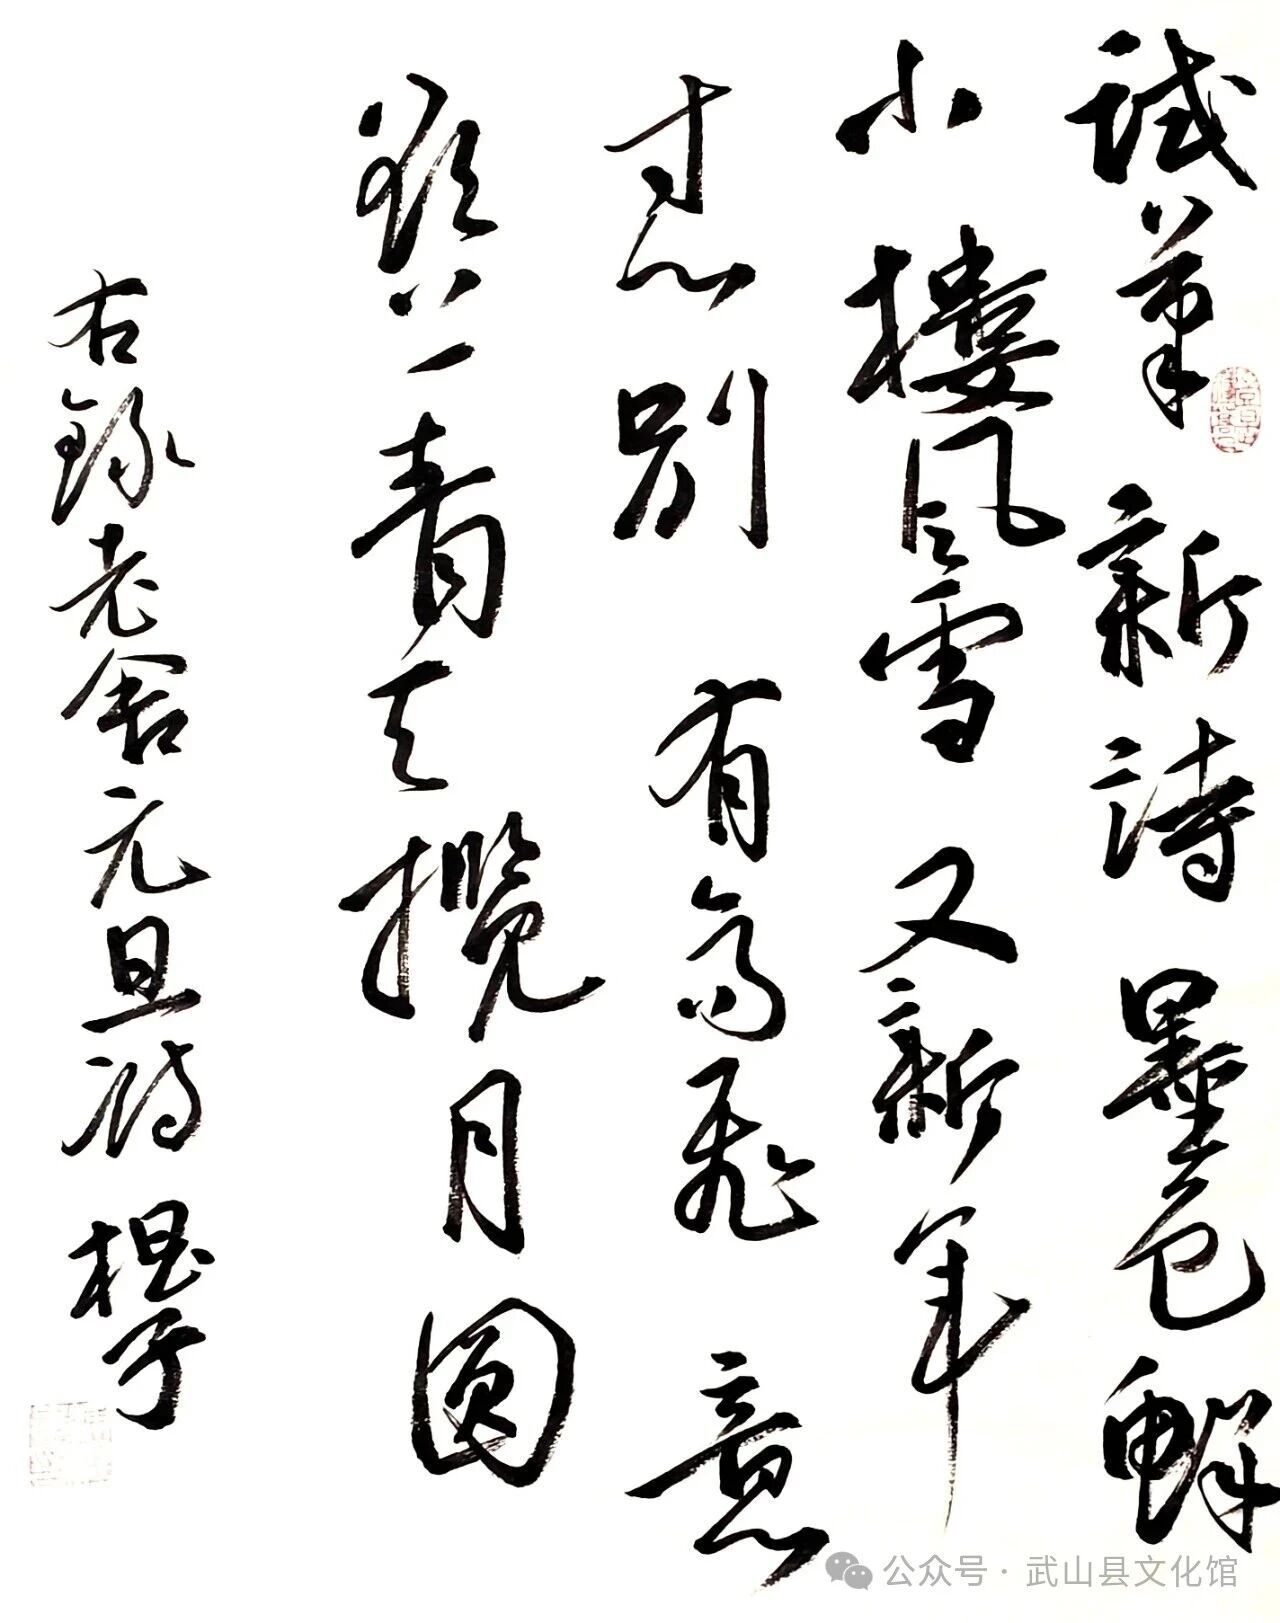 試筆新詩墨色鮮
小樓風雪又新年
寸心別有高飛意
欲上青天攬月圓
右錄老舍元旦詩
公众号·武山县文化馆